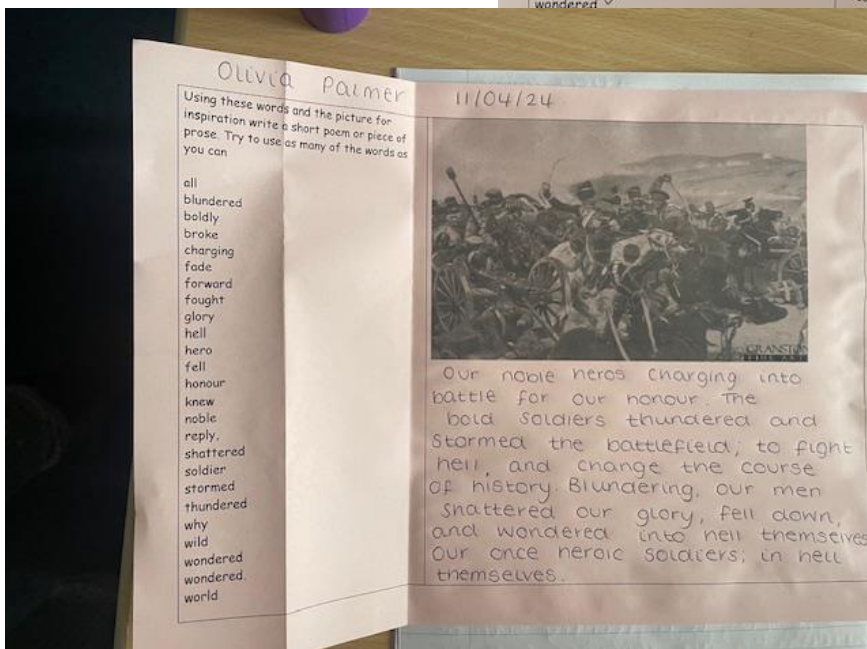 wondered
Olivia Palmer
Using these words and the picture for
inspiration write a short poem or piece of
prose. Try to use as many of the words as
you can
all
blundered
boldly
broke
charging
fade
forward
fought
glory
hell
hero
fell
honour
knew
noble
reply,
shattered
soldier
stormed
thundered
why
wild
wondered
wondered.
world
11/04/24
Our noble heros charging into
battle for our honour. The
bold soldiers thundered and
stormed the battlefield; to fight
hell, and change the course
of history. Blundering, our men
shattered our glory, fell down,
and wondered into hell themselves
Our once heroic soldiers; in hell
themselves.